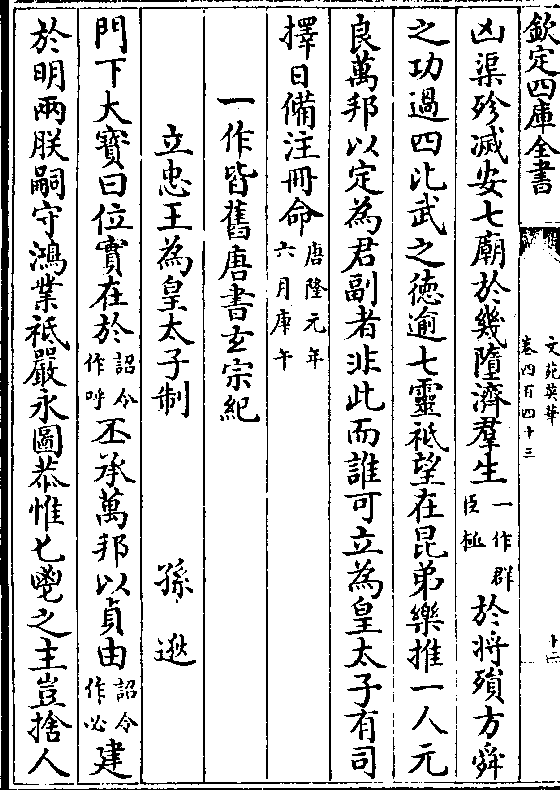 欽定四庫全書
文苑英華
卷四百四十三
十二
凶渠殄滅安七廟於幾墮濟羣生一作群臣極於將殞方舜
之功過四比武之德逾七靈祗望在昆弟樂推一人元
良萬邦以定為君副者非此而誰可立為皇太子有司
擇日備注冊命唐隆元年六月庫午
一作皆舊唐書玄宗紀
立忠王為皇太子制 孫逖
門下大寳曰位實在於詔令作呼丕承萬邦以貞由詔令作必建
於明兩朕嗣守鴻業祗嚴永圖恭惟七鬯之主豈捨人